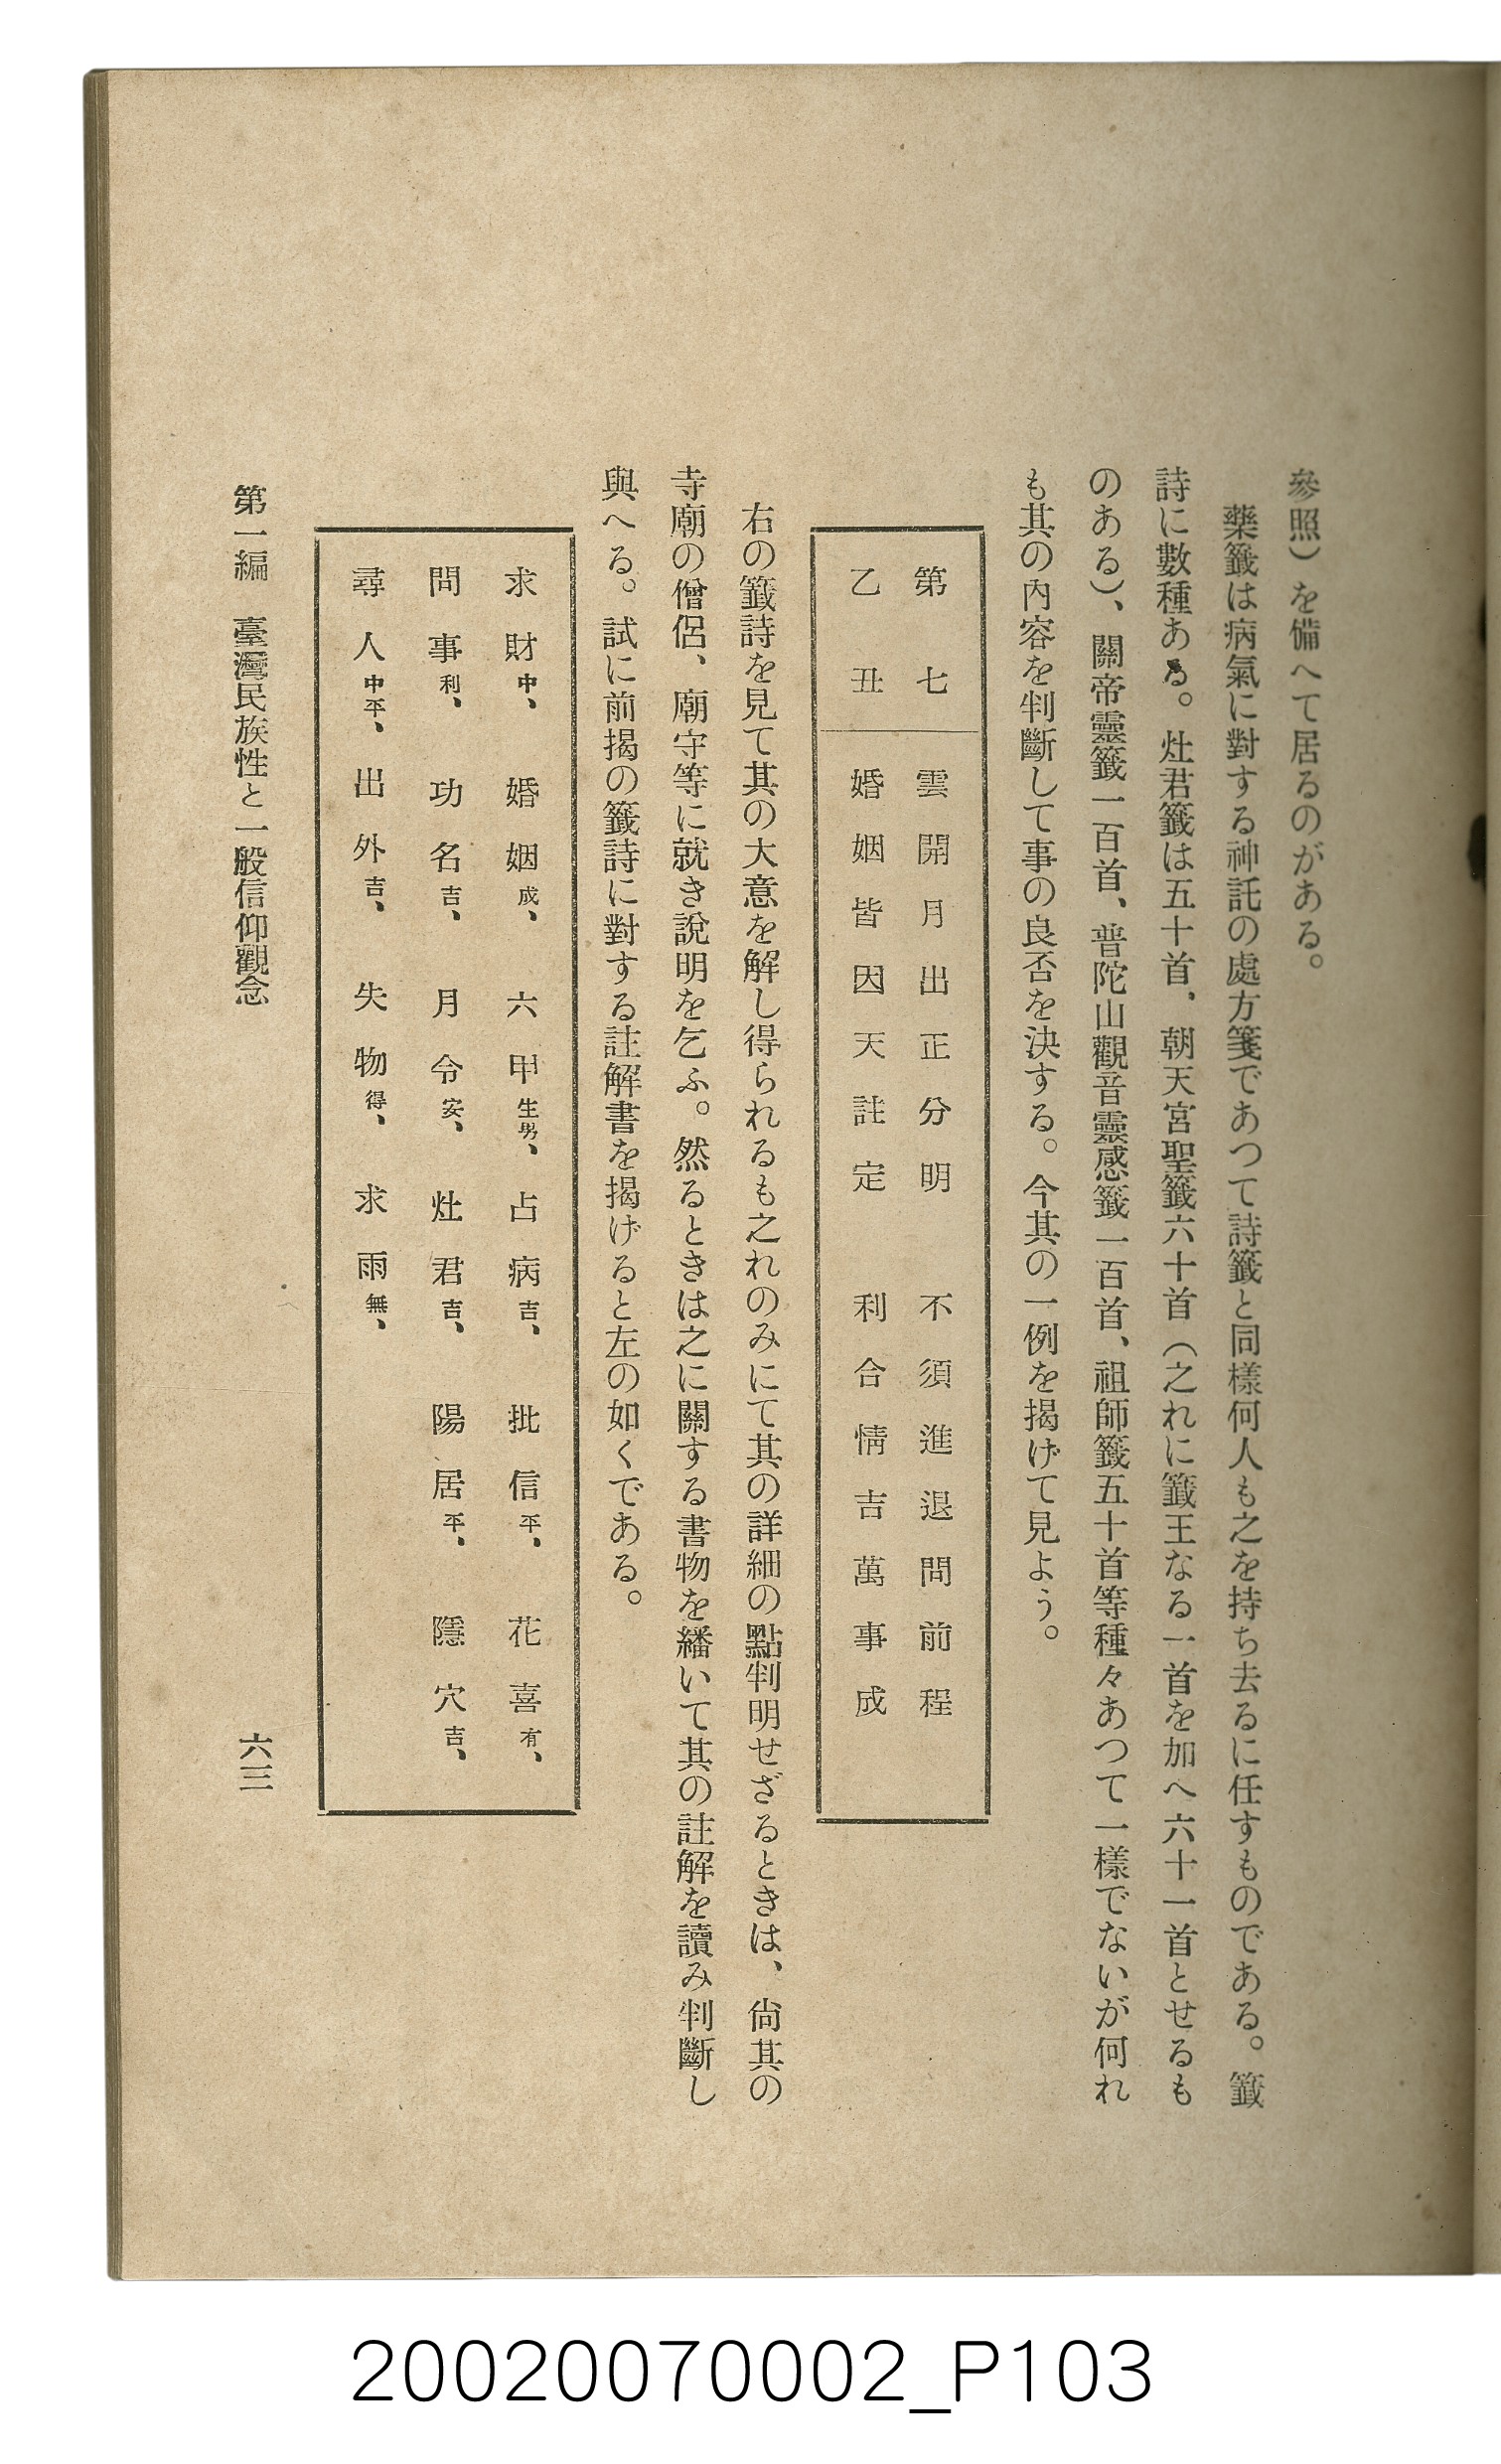 參照）を備へて居るのがある。
藥籤は病氣に對する神託の處方箋であつて詩籤と同樣何人も之を持ち去るに任すものである。籤
詩に數種ある。灶君籤は五十首、朝天宮聖籤六十首（之れに籤王なる一首を加へ六十一首とせるも
のある）、關帝靈籤一百首、普陀山觀音靈感籤一百首、祖師籤五十首等種々あつて一樣でないが何れ
も其の內容を判斷して事の良否を決する。今其の一例を揭げて見よう。
第七 雲開月出正分明 不須進退問前程
乙丑 婚姻皆因天註定 利合情吉萬事成
右の籤詩を見て其の大意を解し得られるも之れのみにて其の詳細の點判明せざるときは、尙其の
寺廟の僧侶、廟守等に就き說明を乞ふ。然るときは之に關する書物を繙いて其の註解を讀み判斷し
與へる。試に前揭の籤詩に對する註解書を揭げると左の如くである。
求財中、 婚姻成、 六甲生男、 占病吉、 批信平、 花喜有、
問事利、 功名吉、 月令安、 灶君吉、 陽居平、 隱穴吉、
尋人中平、 出外吉、 失物得、 求雨無、
第一編 臺灣民族性と一般信仰觀念 六三
20020070002_P103